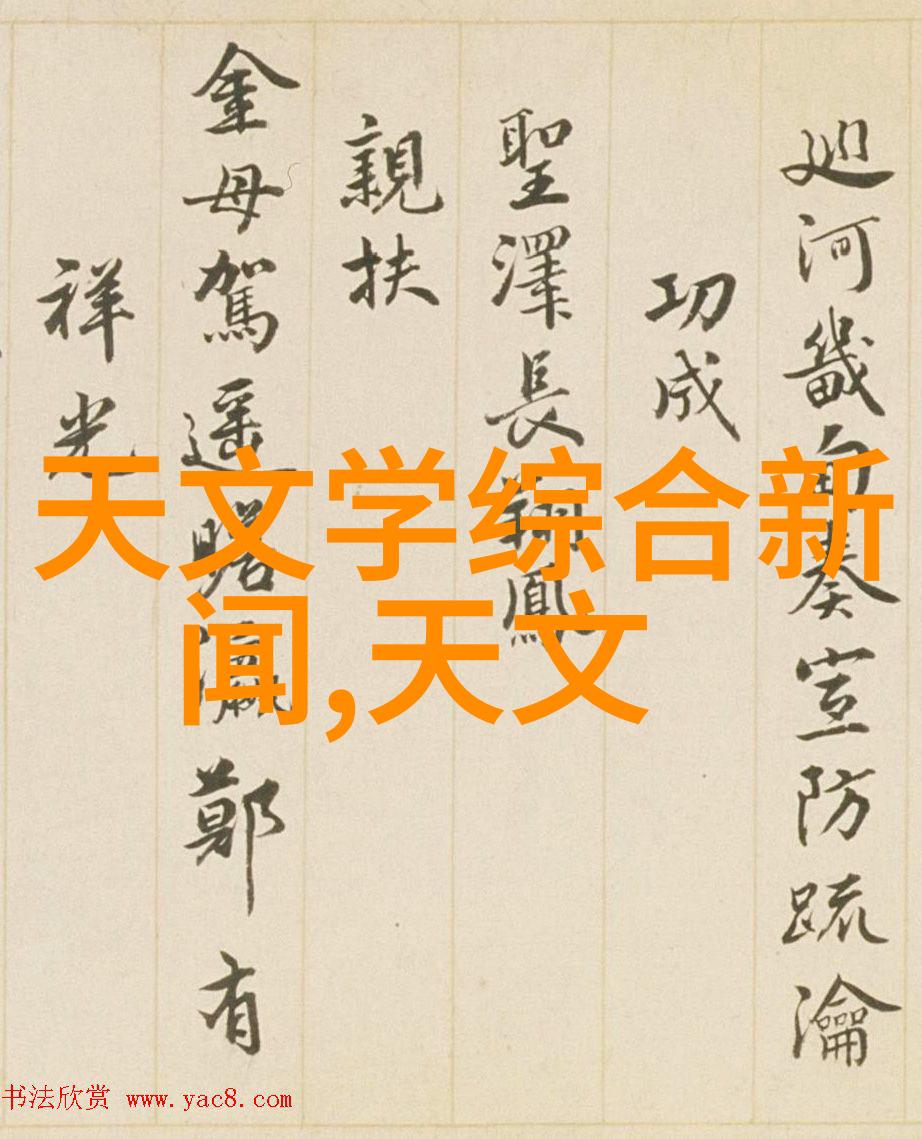 廵河畿甸奏宣防疏瀹
功成
聖澤長翔鳳
親扶
金母駕遥瞻瀛鄭有
祥光
天文学综合新
闻,天文
书法欣赏 www.yac8.com